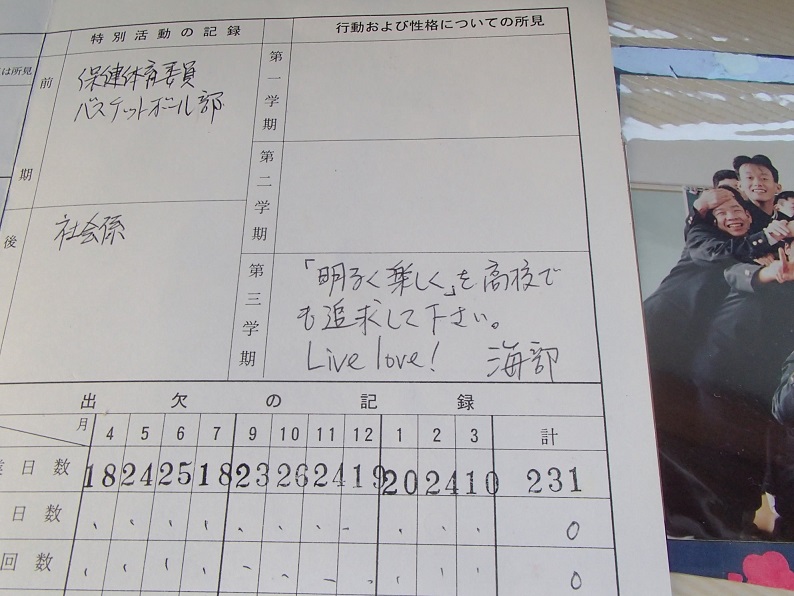 特別活動の記録
行動および性格についての所見
は所見
前期
保健体育委員
バスケットボール部
後
社会係
第一学期
第二学期
第三学期
「明るく楽しく」を高校で
も追求して下さい。
Live love! 海部
出欠の記録
月 4 5 6 7 9 10 11 12 1 2 3 計
日数 18 24 25 18 23 26 24 19 20 24 10 231
日数 0
回数 0